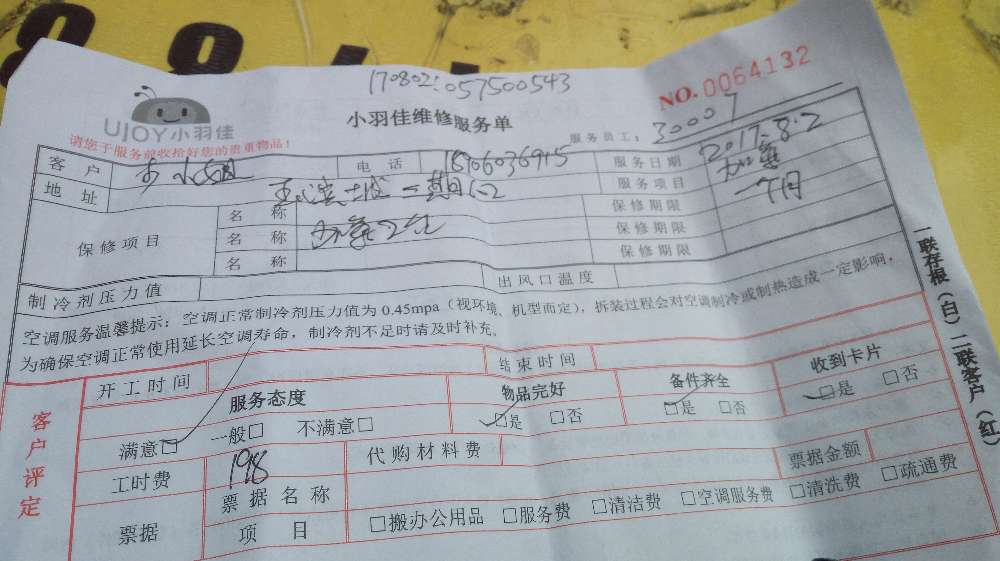 170802057500543
NO. 0064132
UJOY小羽佳
小羽佳维修服务单
服务员工： 30007
请您于服务前收拾好您的贵重物品！
客户 电话 服务日期 2017-8-2
地址 二期 服务项目 加氨
保修项目 名称 保修期限 一个月
名称 保修期限
名称 保修期限
制冷剂压力值 出风口温度
空调服务温馨提示：空调正常制冷剂压力值为0.45mpa（视环境、机型而定），拆装过程会对空调制冷或制热造成一定影响，
为确保空调正常使用延长空调寿命，制冷剂不足时请及时补充。
客户评定
开工时间 结束时间
服务态度 物品完好 备件齐全 收到卡片
满意□ 一般□ 不满意□ □是 □否 □是 □否 □是 □否
工时费 198 代购材料费 票据金额
票据 票据名称
项目 □搬办公用品 □服务费 □清洁费 □空调服务费 □清洗费 □疏通费
一联存根（白）二联客户（红）